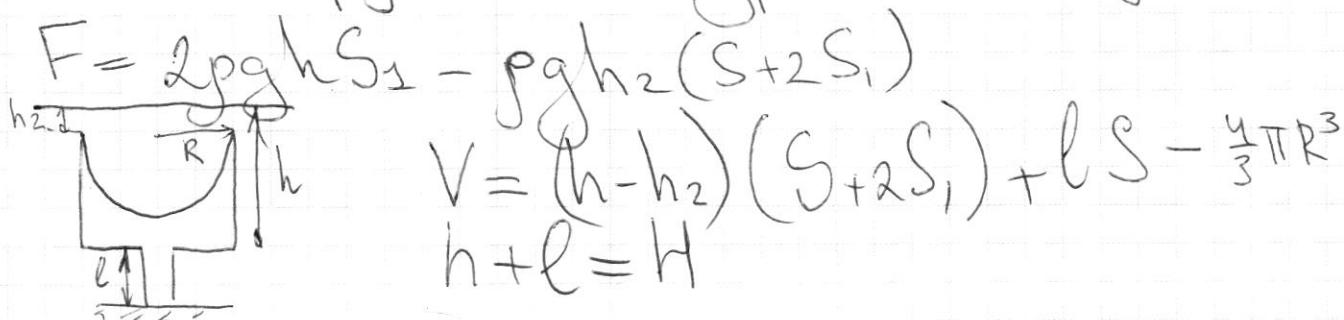 F = 2ρghS₁ − ρgh₂(S+2S₁)
h₂
R
h
l
V = (h-h₂)(S+2S₁) + lS − 4/3 πR³
h+l=H